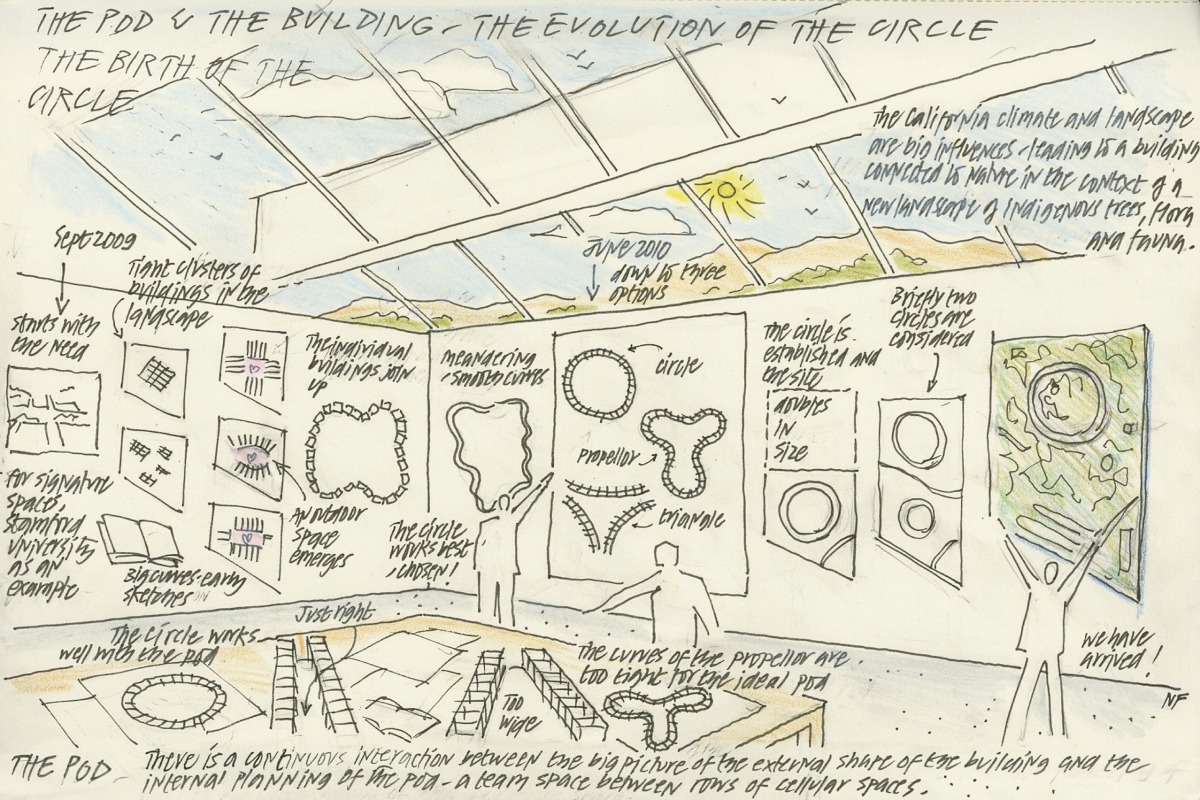 THE POD & THE BUILDING - THE EVOLUTION OF THE CIRCLE
THE BIRTH OF THE
CIRCLE
The California climate and landscape
are big influences - leading to a building
connected to nature in the context of a
new landscape of Indigenous trees, flora
and fauna.
Sept 2009
starts with
the need
for signature
spaces,
Stamford
University
as an
example
Tight clusters of
buildings in the
landscape
Big curves - early
sketches
An outdoor
space
emerges
The individual
buildings join
up
meandering
- smooth curves
The circle
works best
, chosen!
June 2010
down to three
options
circle
propellor
triangle
The circle is
established and
the site
doubles
IN
size
Briefly two
circles are
considered
we have
arrived!
NF
The circle works
well with the pod
Just right
Too
wide
The curves of the propellor are
too tight for the ideal pod
THE POD - There is a continuous interaction between the big picture of the external share of the building and the
internal planning of the pod - a team space between rows of cellular spaces.